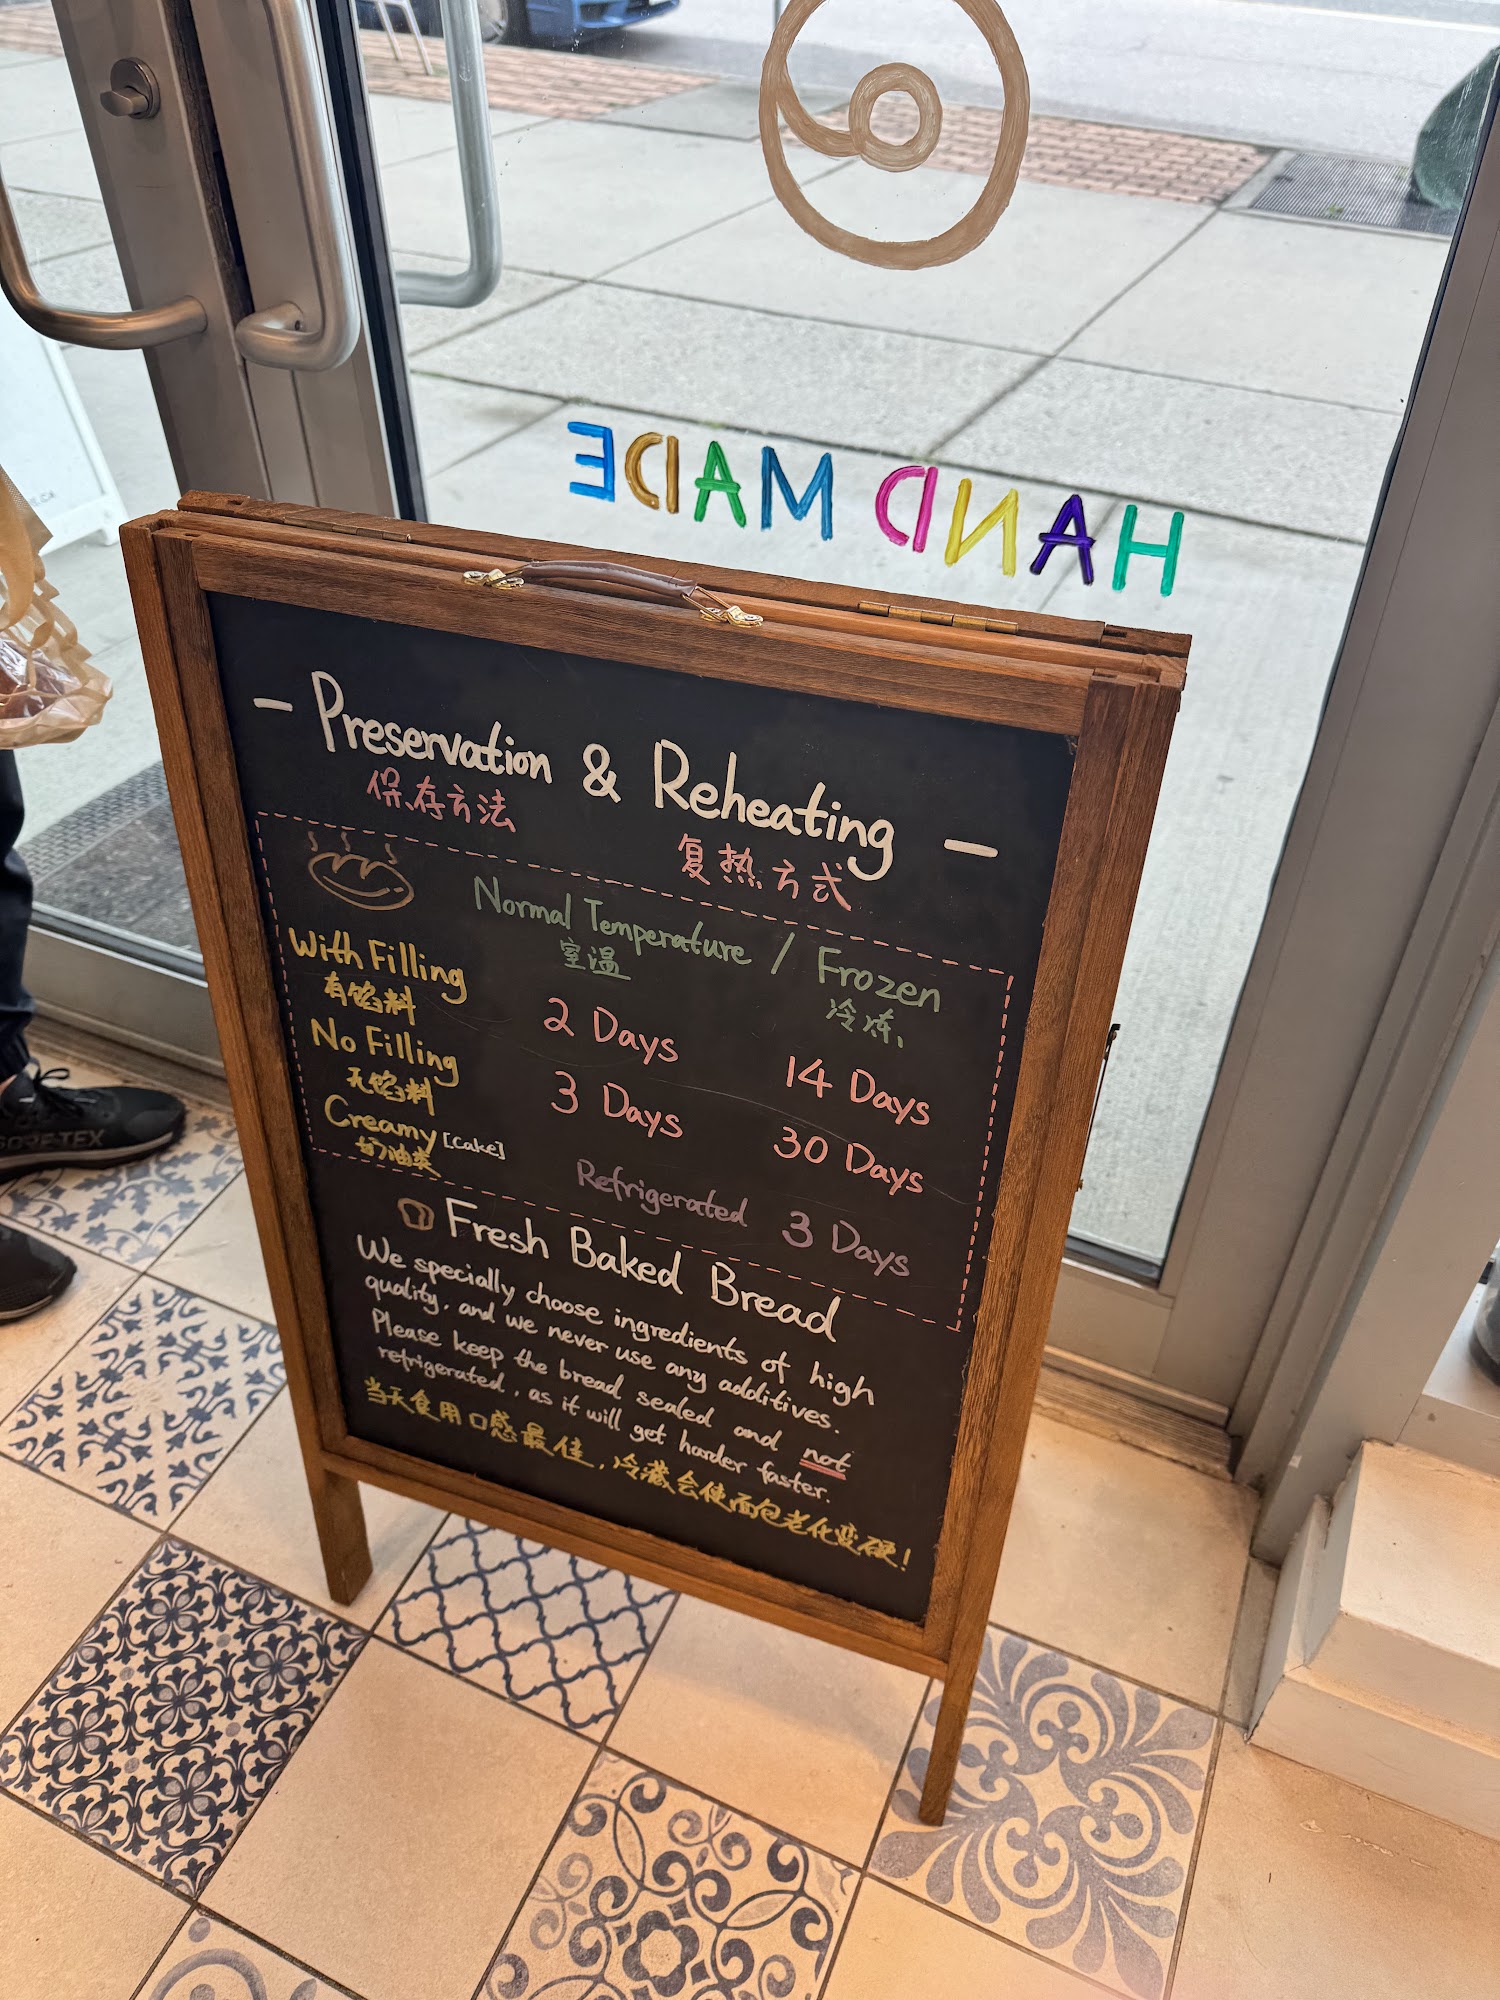 HAND MADE
- Preservation & Reheating -
保存方法 复热方式
Normal Temperature / Frozen
室温 冷冻
With Filling 2 Days 14 Days
有馅料
No Filling 3 Days 30 Days
无馅料
Creamy [Cake] Refrigerated 3 Days
奶油类
Fresh Baked Bread
We specially choose ingredients of high
quality, and we never use any additives.
Please keep the bread sealed and not
refrigerated, as it will get harder faster.
当天食用口感最佳,冷藏会使面包老化变硬!
GORE-TEX